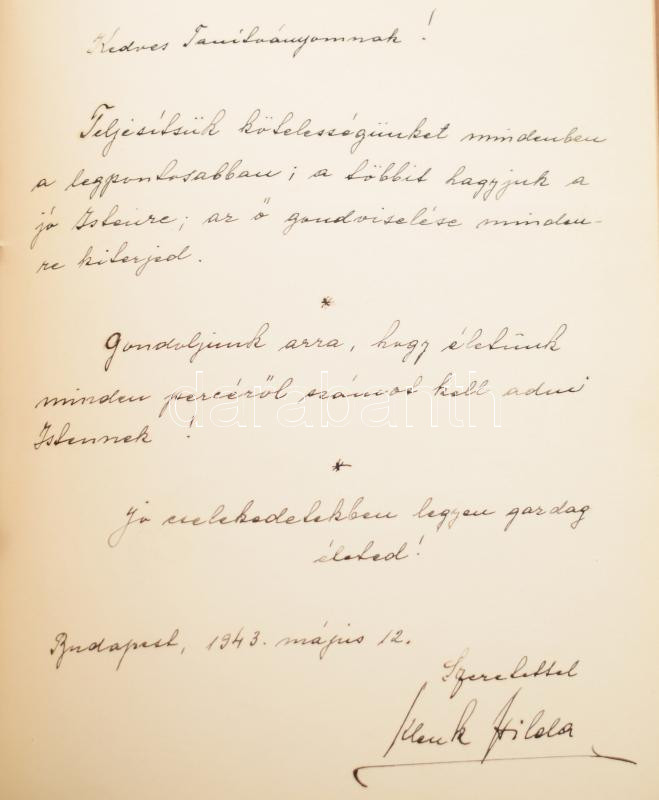 Kedves Tanítványomnak!
Teljesítsük kötelességünket mindenben
a legpontosabban; a többit hagyjuk a
jó Istenre; az ő gondviselése minden-
re kiterjed.
*
Gondoljunk arra, hogy életünk
minden percéről számot kell adni
Istennek!
*
Jó cselekedetekben legyen gazdag
életed!
Budapest, 1943. május 12.
Szeretettel
Klenk Hilda
darabanth